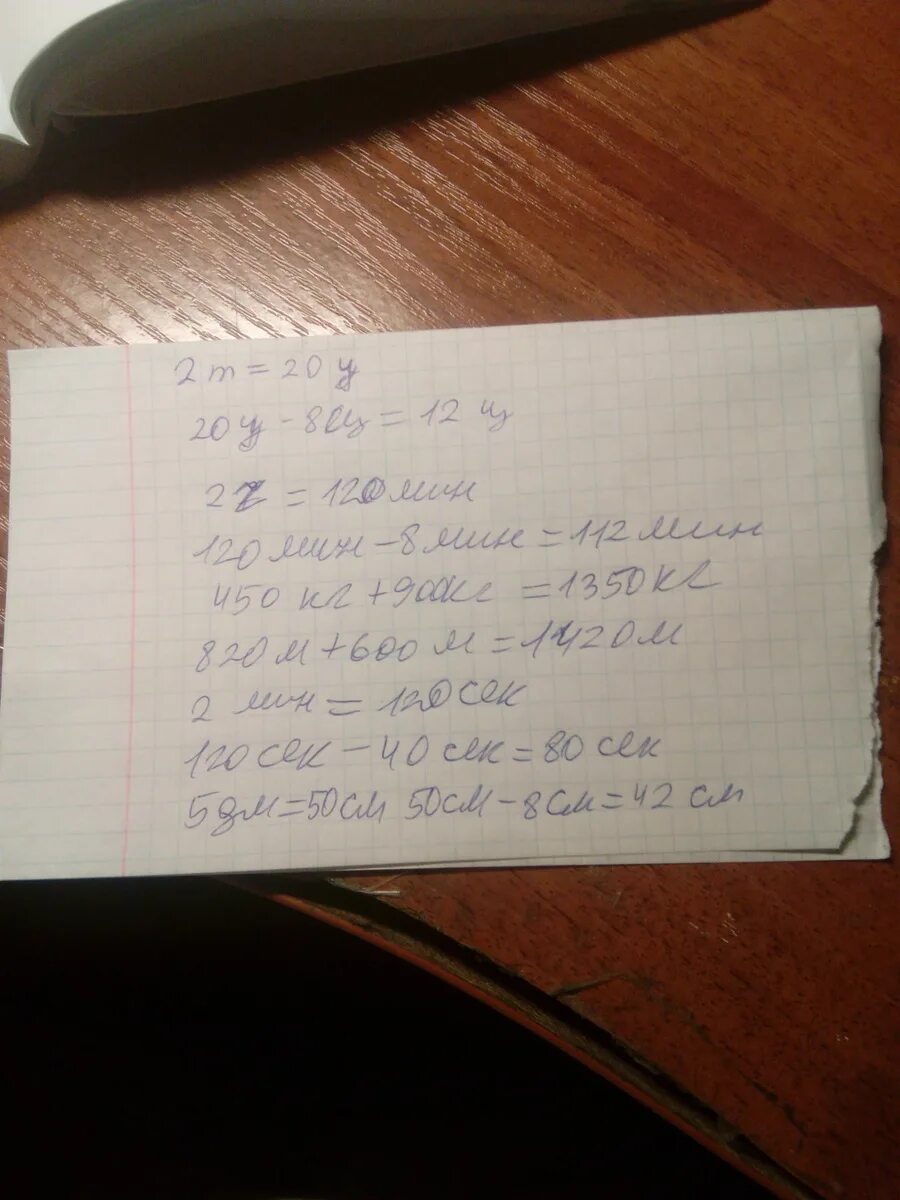 2 т = 20 ц
20 ц - 8 ц = 12 ц
2 ч = 120 мин
120 мин - 8 мин = 112 мин
450 кг + 900 кг = 1350 кг
820 м + 600 м = 1420 м
2 мин = 120 сек
120 сек - 40 сек = 80 сек
5 дм = 50 см 50 см - 8 см = 42 см